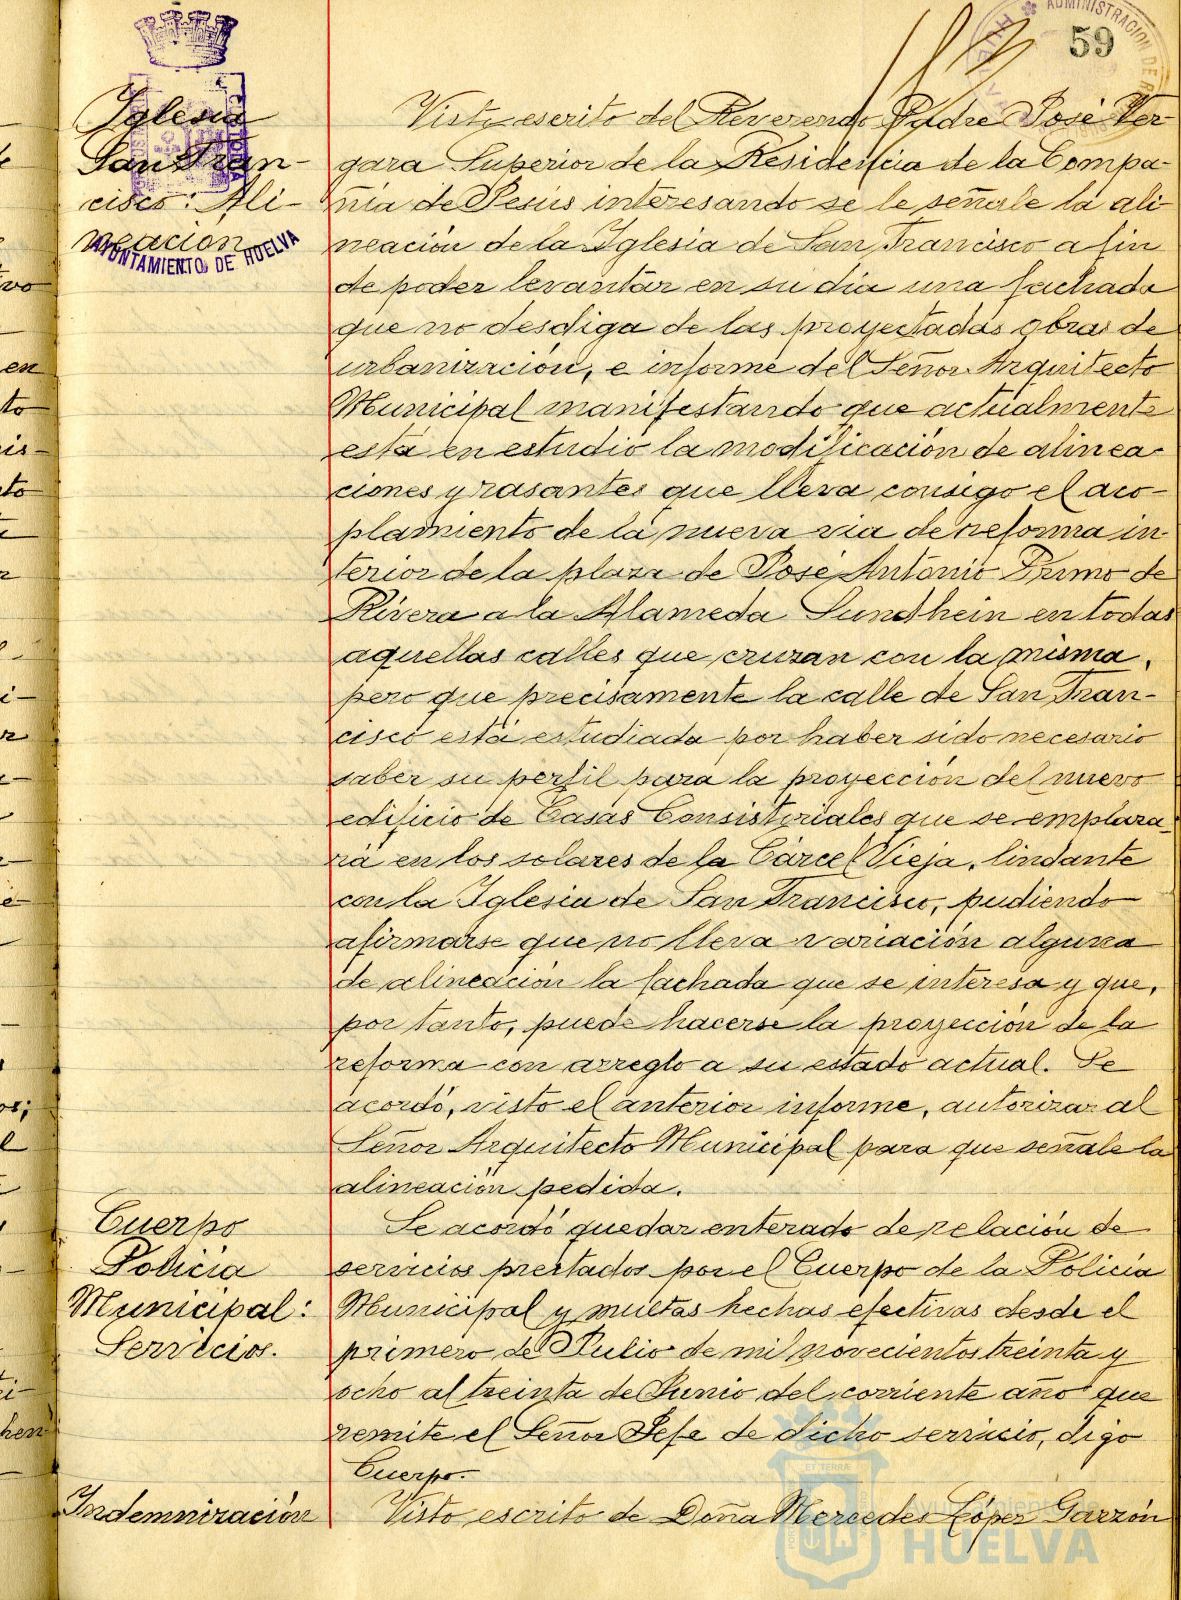 59
ADMINISTRACION DE
HUELVA
AYUNTAMIENTO DE HUELVA
Iglesia
San Fran-
cisco: Ali-
neación
Visto escrito del Reverendo Padre José Ver-
gara Superior de la Residencia de la Compa-
ñia de Jesús interesando se le señale la ali-
neación de la Iglesia de San Francisco a fin
de poder levantar en su dia una fachada
que no desdiga de las proyectadas obras de
urbanización, e informe del Señor Arquitecto
Municipal manifestando que actualmente
está en estudio la modificación de alinea-
ciones y rasantes que lleva consigo el aco-
plamiento de la nueva via de reforma in-
terior de la plaza de José Antonio Primo de
Rivera a la Alameda Sundhein en todas
aquellas calles que cruzan con la misma,
pero que precisamente la calle de San Fran-
cisco está estudiada por haber sido necesario
saber su perfil para la proyección del nuevo
edificio de Casas Consistoriales que se emplaza-
rá en los solares de la Cárcel Vieja, lindante
con la Iglesia de San Francisco, pudiendo
afirmarse que no lleva variación alguna
de alineación la fachada que se interesa y que,
por tanto, puede hacerse la proyección de la
reforma con arreglo a su estado actual. Se
acordó, visto el anterior informe, autorizar al
Señor Arquitecto Municipal para que señale la
alineación pedida.
Cuerpo
Policia
Municipal:
Servicios.
Se acordó quedar enterado de relación de
servicios prestados por el Cuerpo de la Policia
Municipal y multas hechas efectivas desde el
primero de Julio de mil novecientos treinta y
ocho al treinta de Junio del corriente año que
remite el Señor Jefe de dicho servicio, digo
Cuerpo.
Indemnización
Visto escrito de Doña Mercedes López Garzón
Ayuntamiento de
HUELVA